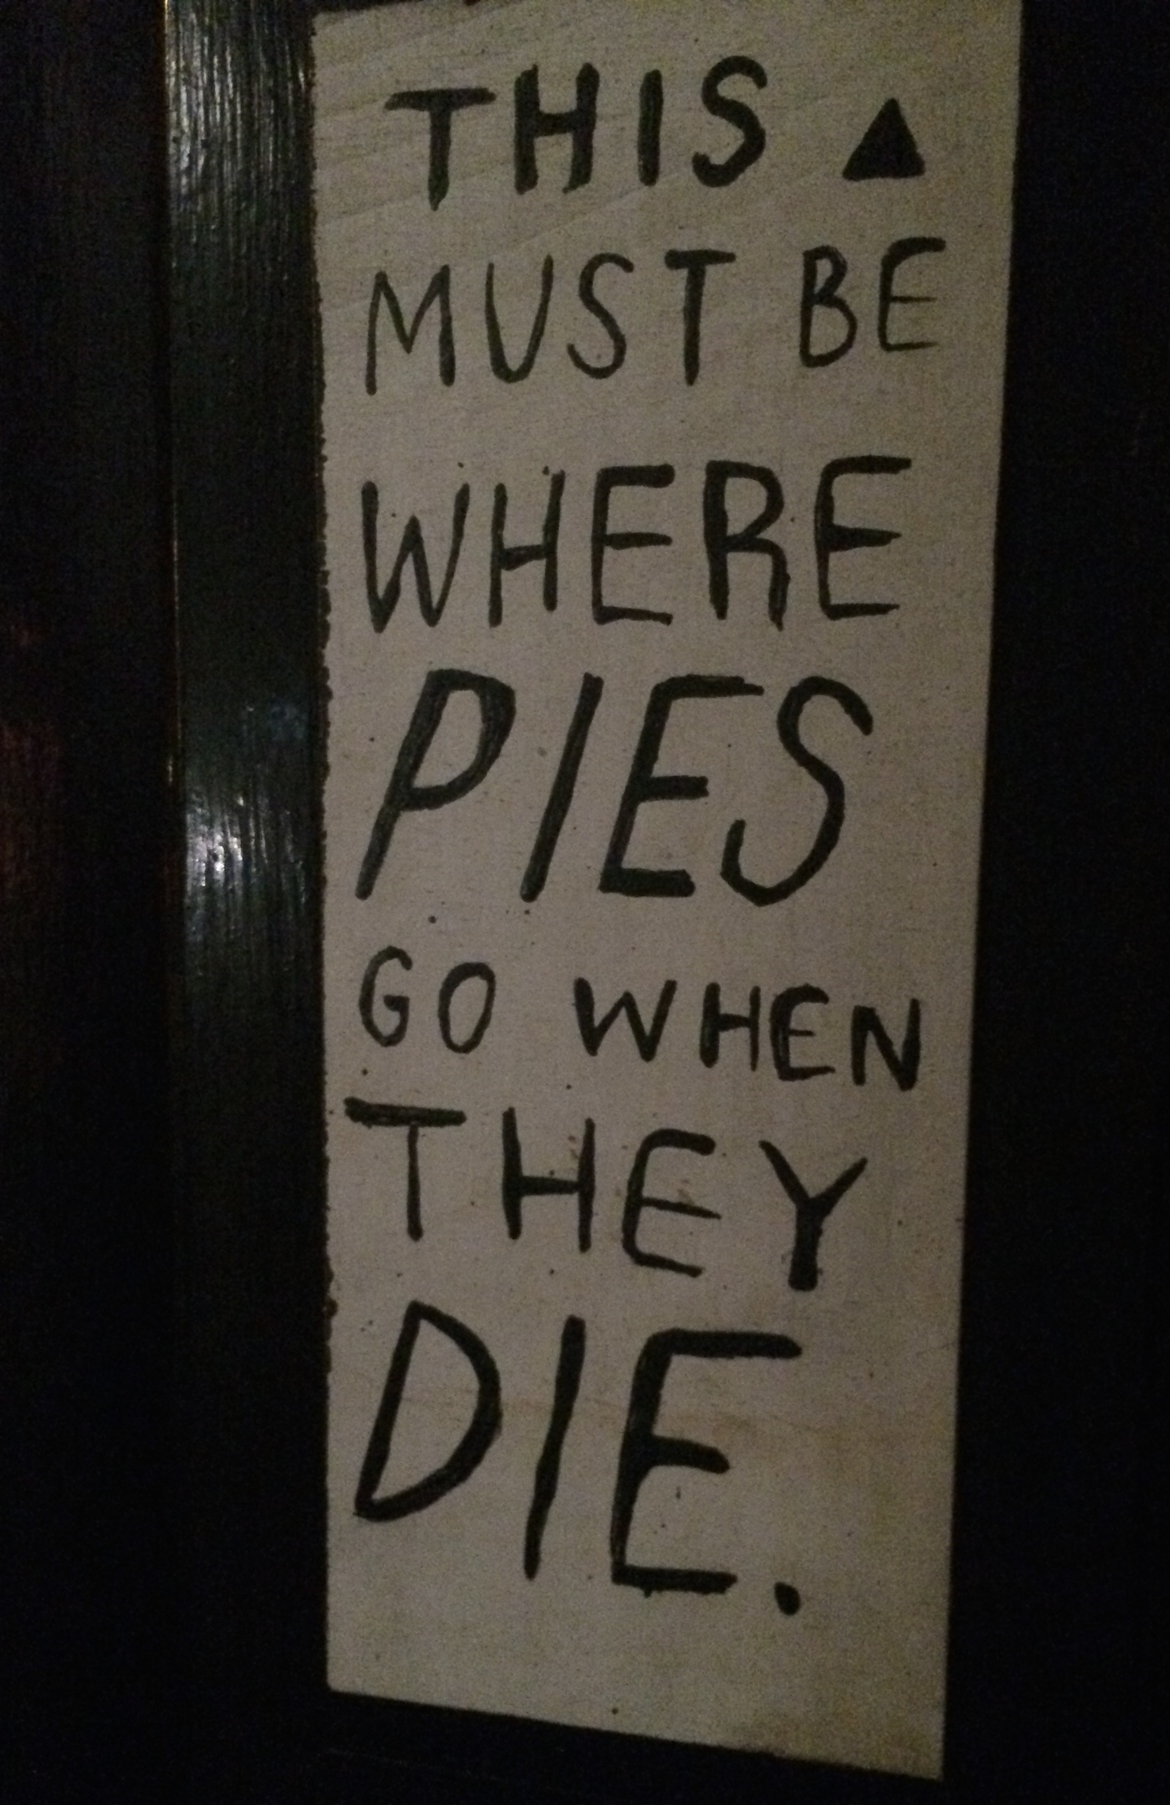 THIS ▲
MUST BE
WHERE
PIES
GO WHEN
THEY
DIE.